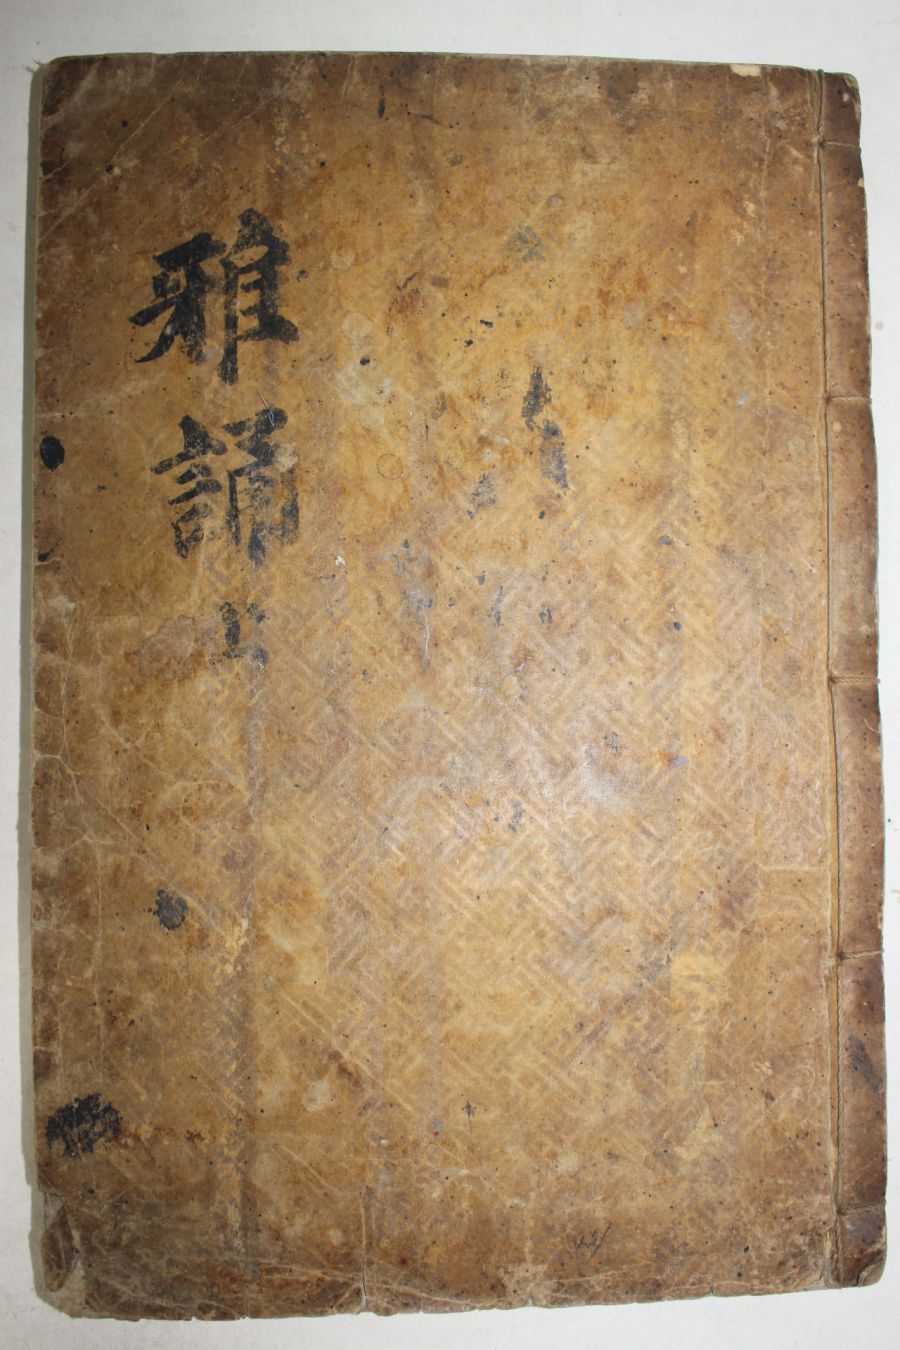 雅誦上